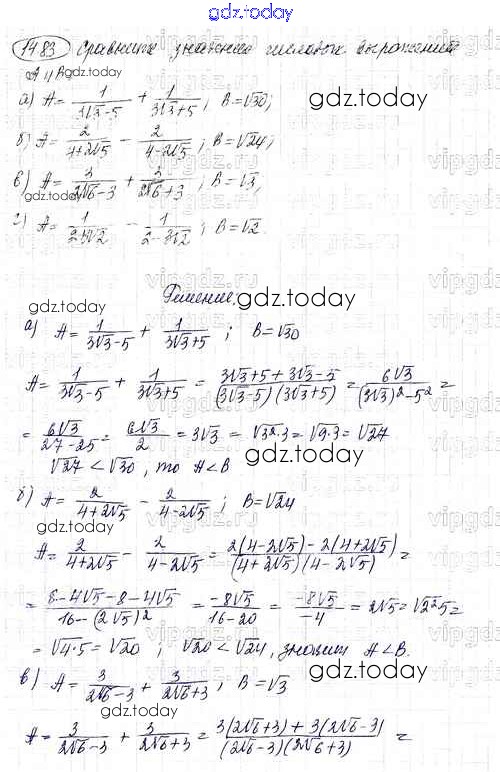 gdz.today
1483 Сравните значения числовых выражений
А и В gdz.today
а) A = 1/(3√3-5) + 1/(3√3+5); B=√30;
б) A = 2/(4+2√5) - 2/(4-2√5); B=√24;
в) A = 3/(2√6-3) + 3/(2√6+3); B=√3;
г) A = 1/(2+3√2) - 1/(2-3√2); B=√2.
Решение. gdz.today
а) A = 1/(3√3-5) + 1/(3√3+5); B=√30
A = 1/(3√3-5) + 1/(3√3+5) = (3√3+5+3√3-5)/((3√3-5)(3√3+5)) = 6√3/((3√3)²-5²) =
= 6√3/(27-25) = 6√3/2 = 3√3 = √3²·3 = √9·3 = √27
√27 < √30, то A<B
б) A = 2/(4+2√5) - 2/(4-2√5); B=√24
A = 2/(4+2√5) - 2/(4-2√5) = (2(4-2√5)-2(4+2√5))/((4+2√5)(4-2√5)) =
= (8-4√5-8-4√5)/(16-(2√5)²) = -8√5/(16-20) = -8√5/-4 = 2√5 = √2²5 =
= √4·5 = √20; √20 < √24, значит A<B.
в) A = 3/(2√6-3) + 3/(2√6+3); B=√3
A = 3/(2√6-3) + 3/(2√6+3) = (3(2√6+3)+3(2√6-3))/((2√6-3)(2√6+3)) =